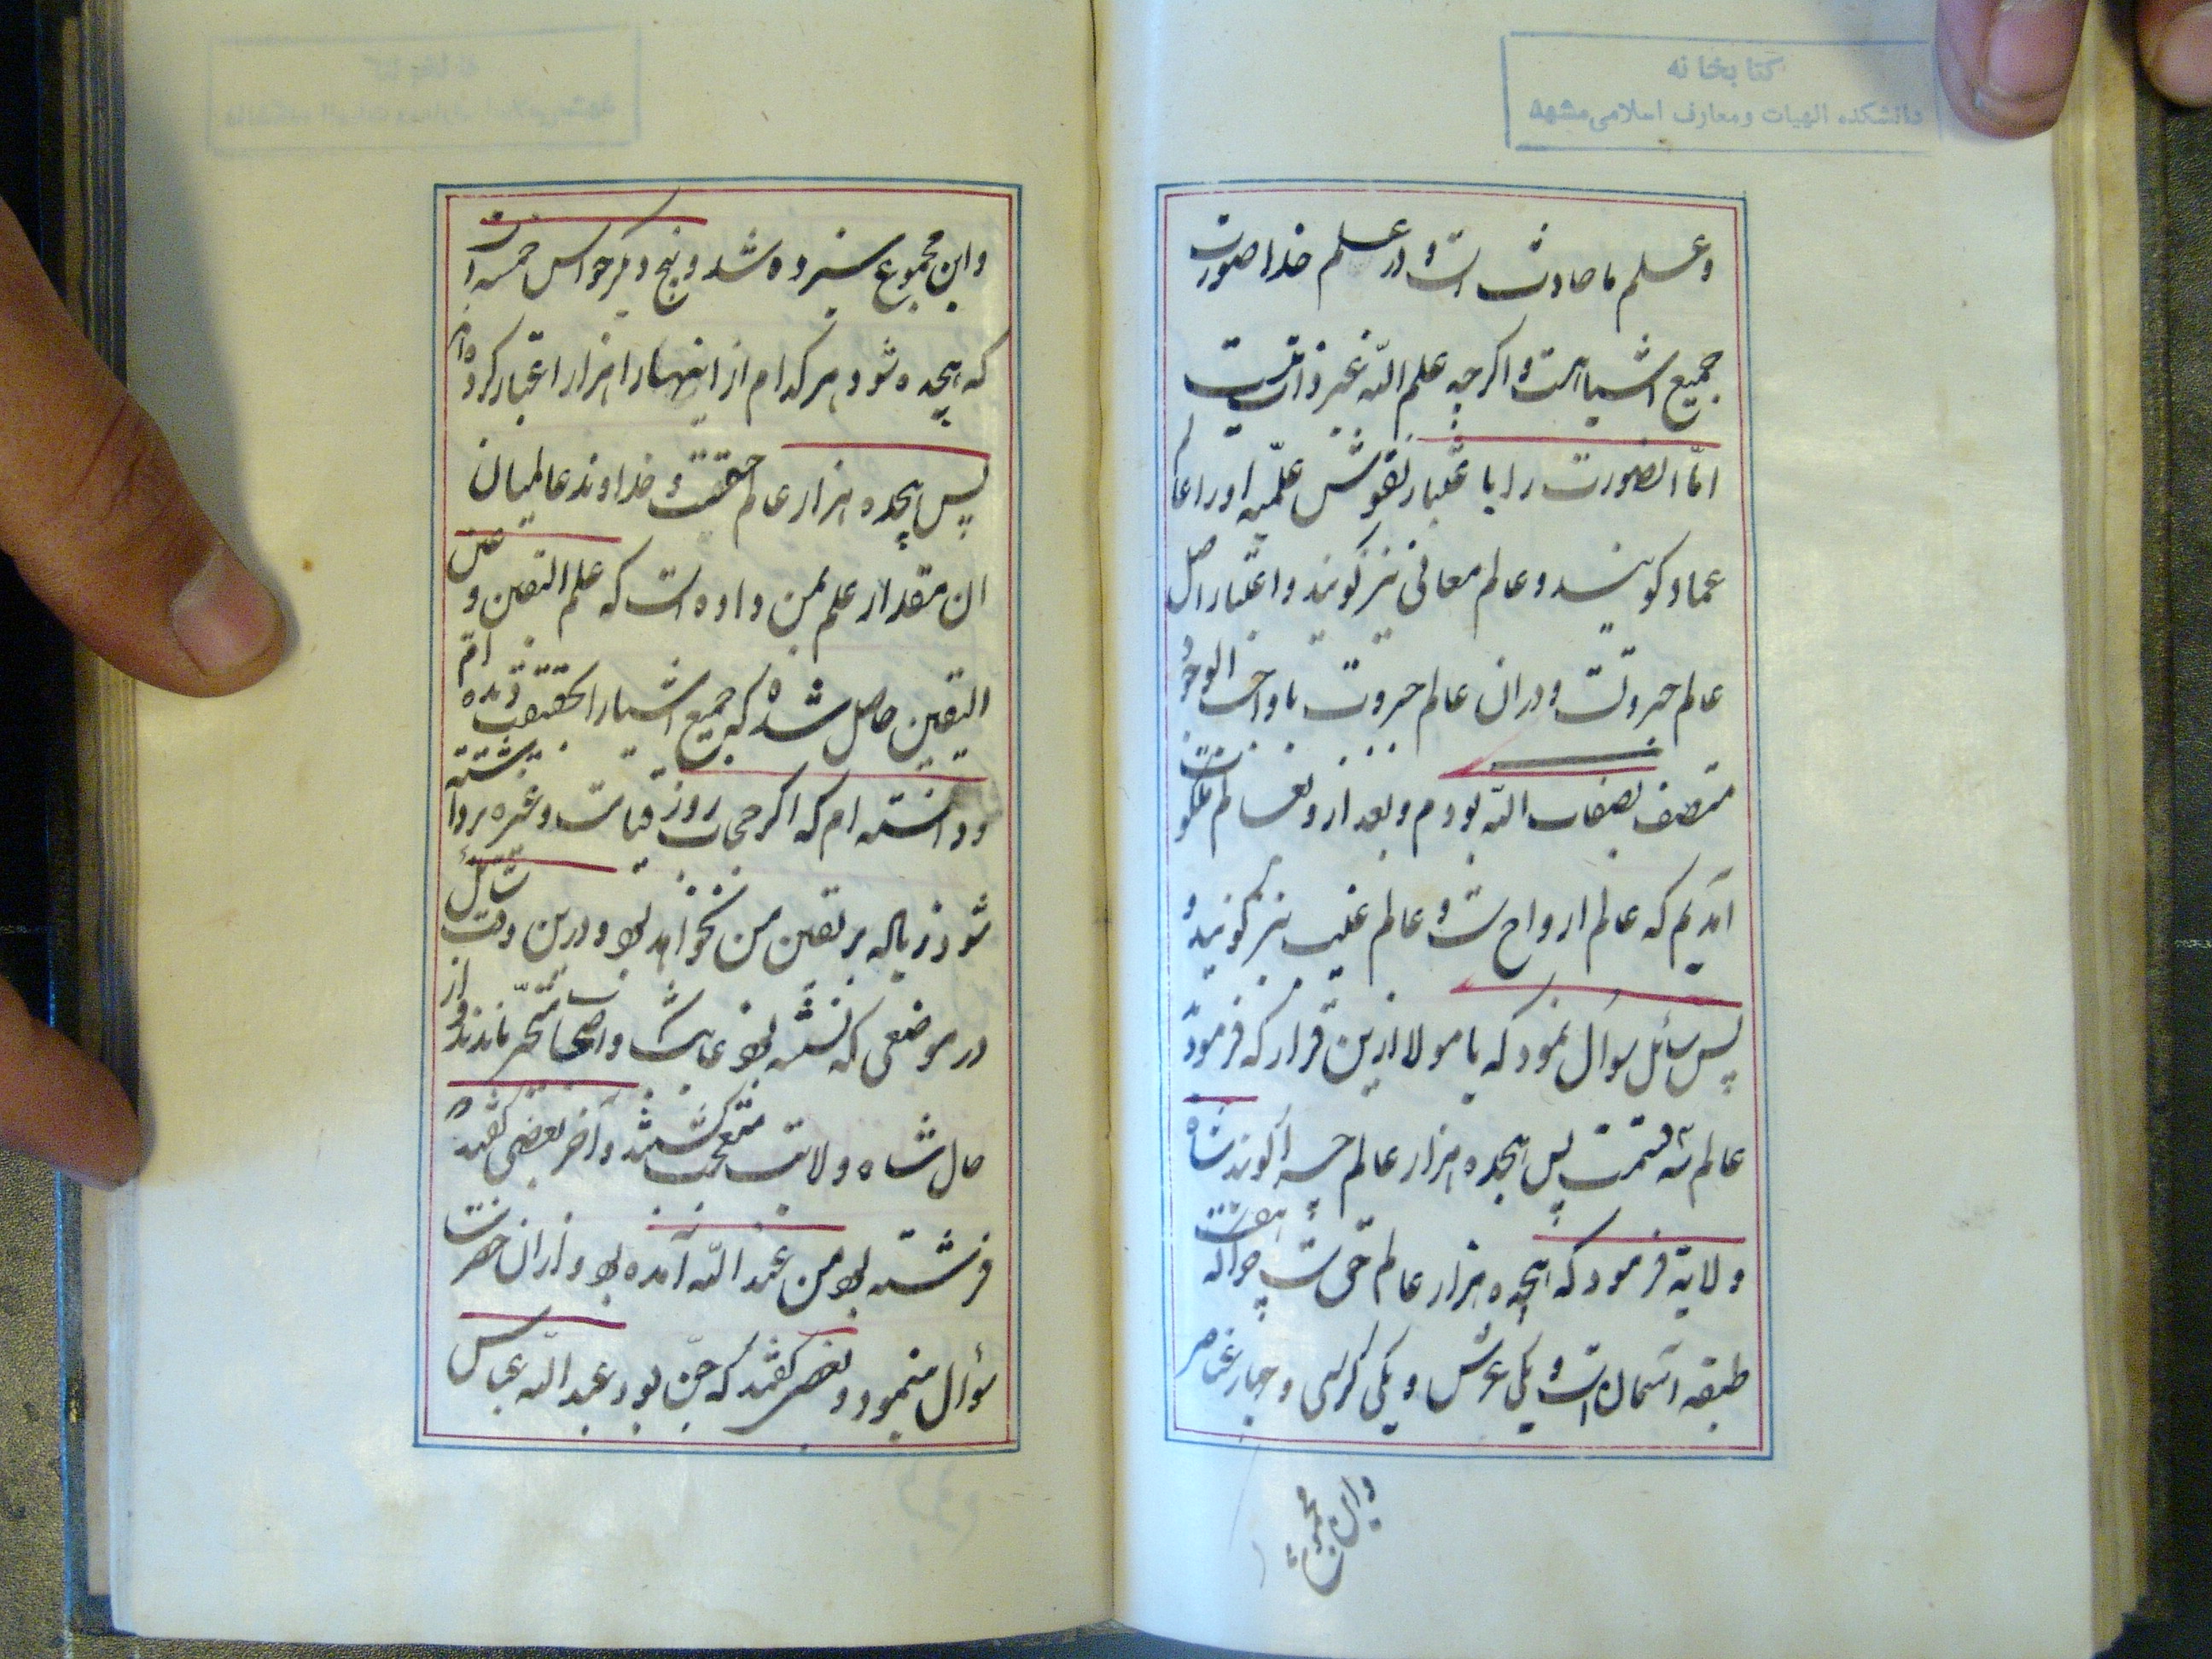 کتابخانه
دانشکده الهیات و معارف اسلامی مشهد
و علم ما حادث است و در علم خدا صورت
جمیع اشیا هست و اگرچه علم الله غیر ذات نیست
امّا انصورت را باعتبار نقوش علمیه او را عالم
عماد کویند و عالم معانی نیز کویند و اعتبار اصل
عالم جبروتست و دران عالم جبروت با واجب الوجود
متصف بصفات الله بودم و بعد از و بعالم ملکوت
آمدیم که عالم ارواح است و عالم غیب نیز کویند و
پس سائل سوال نمود که یا مولا ازین قرار که فرمود
عالم سه قسمت پس هجده هزار عالم چرا کویند شاه
ولایة فرمود که هجده هزار عالم حق است چرا که هفت
طبقه آسمان است و یکی عرش و یکی کرسی و چهار عناصر
و این مجموع
و این مجموع سیزده شد و پنج دیکر حواس خمسه است
که هیجده شود هر کدام از اینها را هزار اعتبار کرده اند
پس هیجده هزار عالم حقست و خداوند عالمیان
ان مقدار علم بمن داده است که علم الیقین و عین
الیقین حاصل شده که جمیع اشیا را بحقیقت دیده ام
و دانسته ام که اکر حجاب روز قیامت و غیره برداشته
شود زیاله بر یقین من نخواهد بود و درین وقت سائل
در موضعی که نشسته بود غایب شد و اصحاب متحیّر ماندند و از
حال شاه ولایت متعجب کشتند و آخر بعضی کفتند که
فرشته بود من عند الله آمده بود و از ان حضرت
سؤال مینمود و بعضی کفتند که جن بود عبد الله عباس